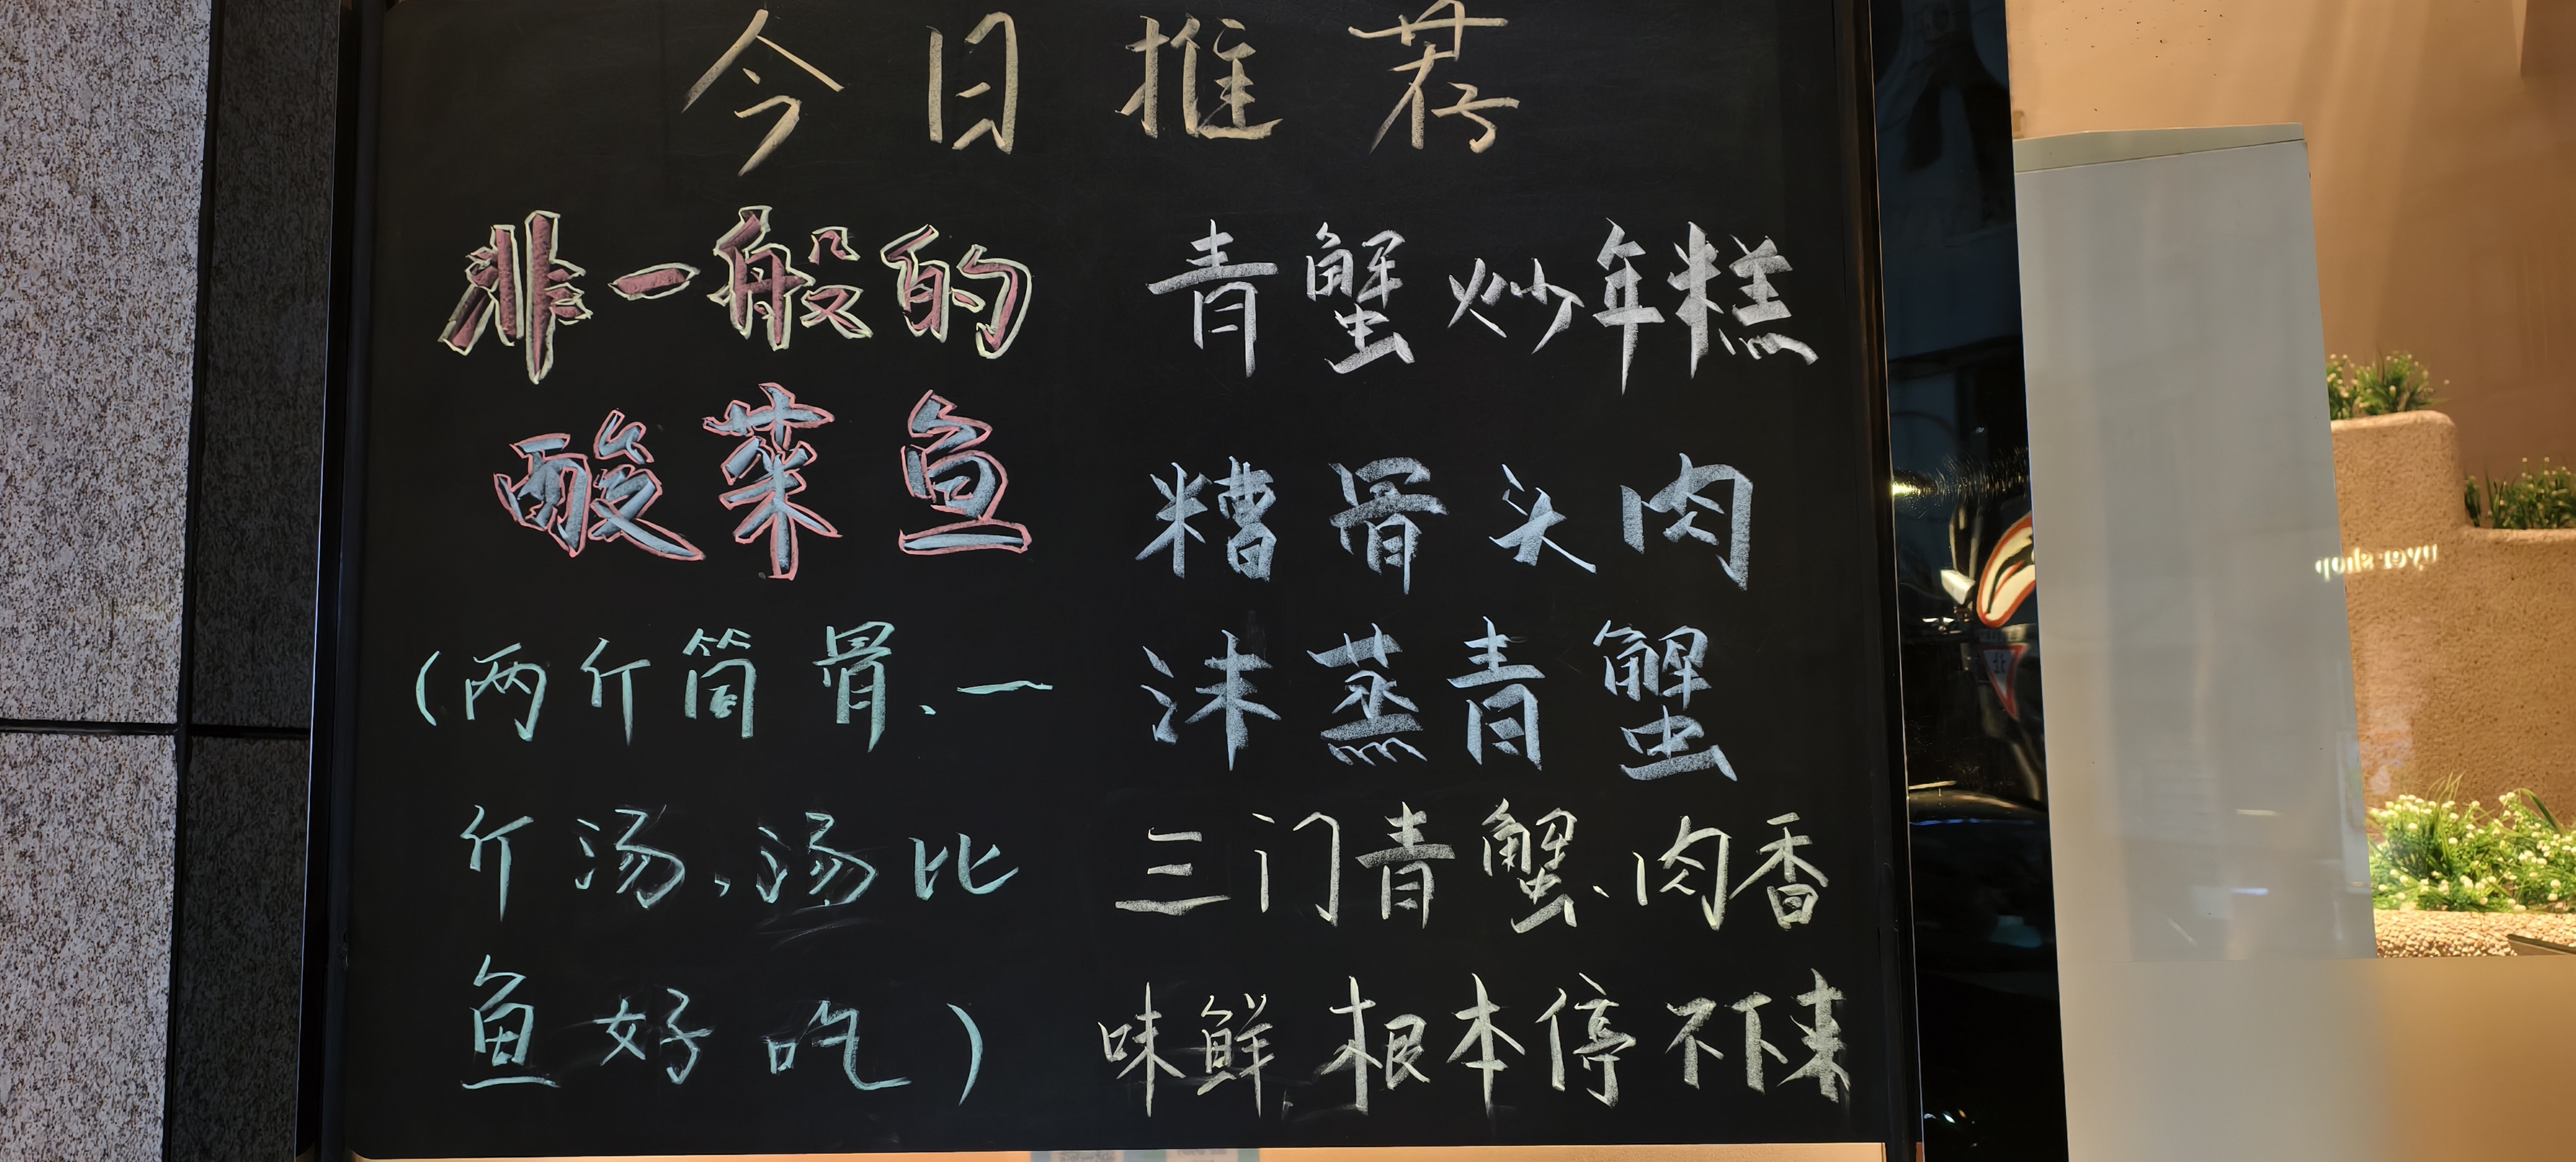 今日推荐
非一般的
酸菜鱼
(两斤筒骨、一
斤汤,汤比
鱼好吃)
青蟹炒年糕
糟骨头肉
沫蒸青蟹
三门青蟹、肉香
味鲜,根本停不下来